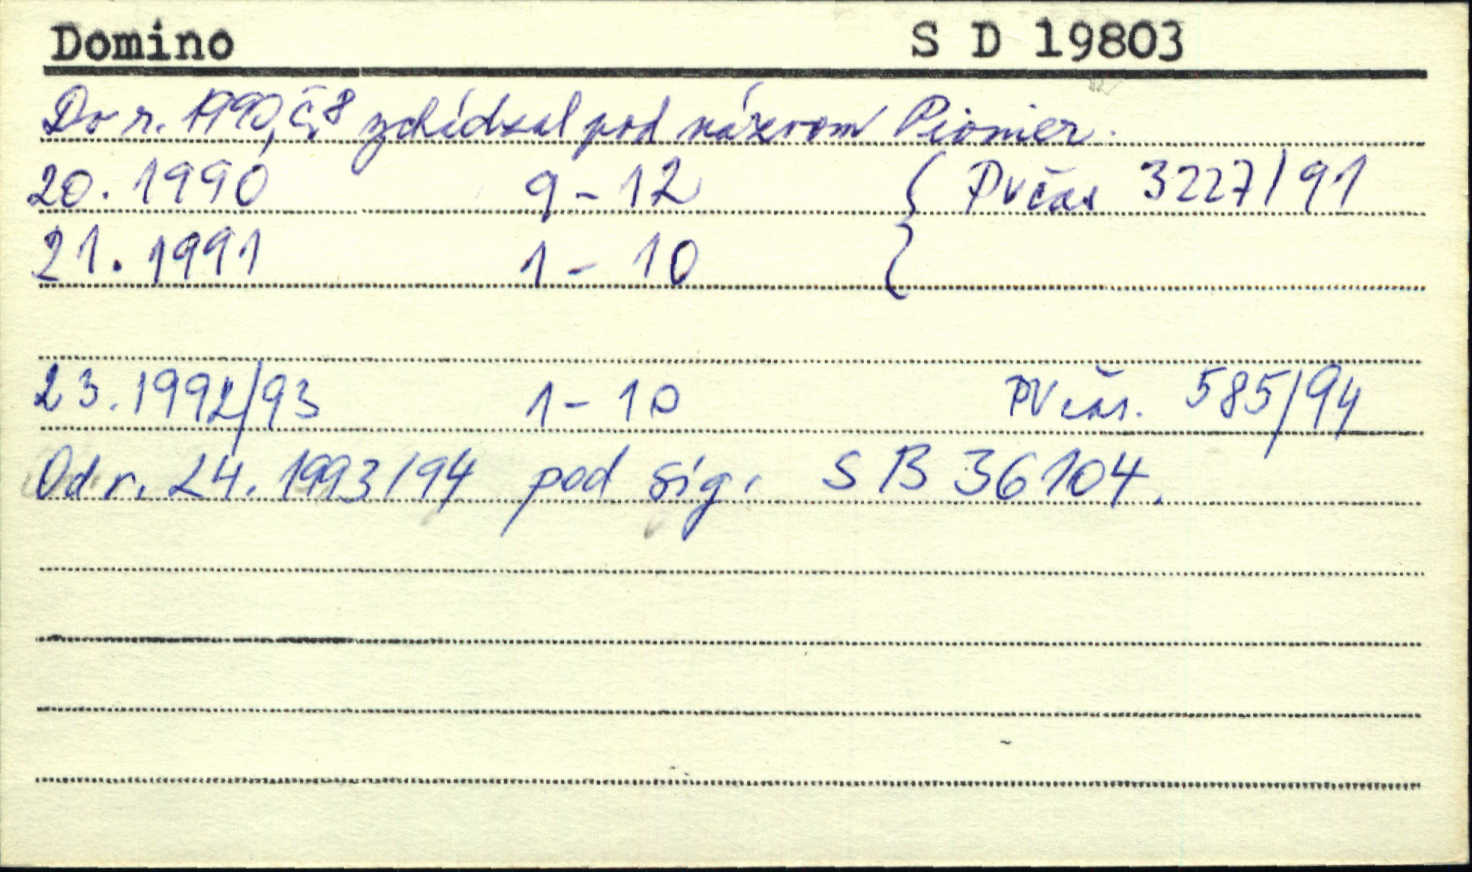 Domino S D 19803
Do r. 1990, č. 8 vychádzal pod názvom Pionier.
20. 1990 9-12 { PVčas 3227/91
21. 1991 1-10
23. 1992/93 1-10 PV čas. 585/94
Od r. 24. 1993/94 pod sig. S B 36104.